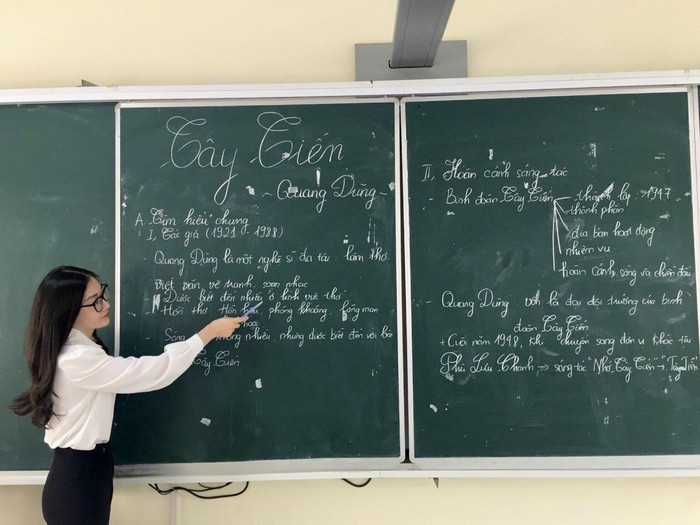 Tây Tiến
~ Quang Dũng ~
A. Tìm hiểu chung
I, Tác giả (1921 - 1988)
- Quang Dũng là một nghệ sĩ đa tài: làm thơ
viết văn, vẽ tranh, soạn nhạc
- Được biết đến nhiều ở lĩnh vực thơ
- Hồn thơ: Hồn hậu, phóng khoáng, lãng mạn
hoa
- Sáng không nhiều, nhưng được biết đến với bài
Tây Tiến
II. Hoàn cảnh sáng tác
- Binh đoàn Tây Tiến
thành lập: 1947
thành phần
địa bàn hoạt động
nhiệm vụ
hoàn cảnh sống và chiến đấu
- Quang Dũng vốn là đại đội trưởng của binh
đoàn Tây Tiến
+ Cuối năm 1948, khi chuyển sang đơn vị khác tại
Phù Lưu Chanh → sáng tác "Nhớ Tây Tiến" → "Tây Tiến"